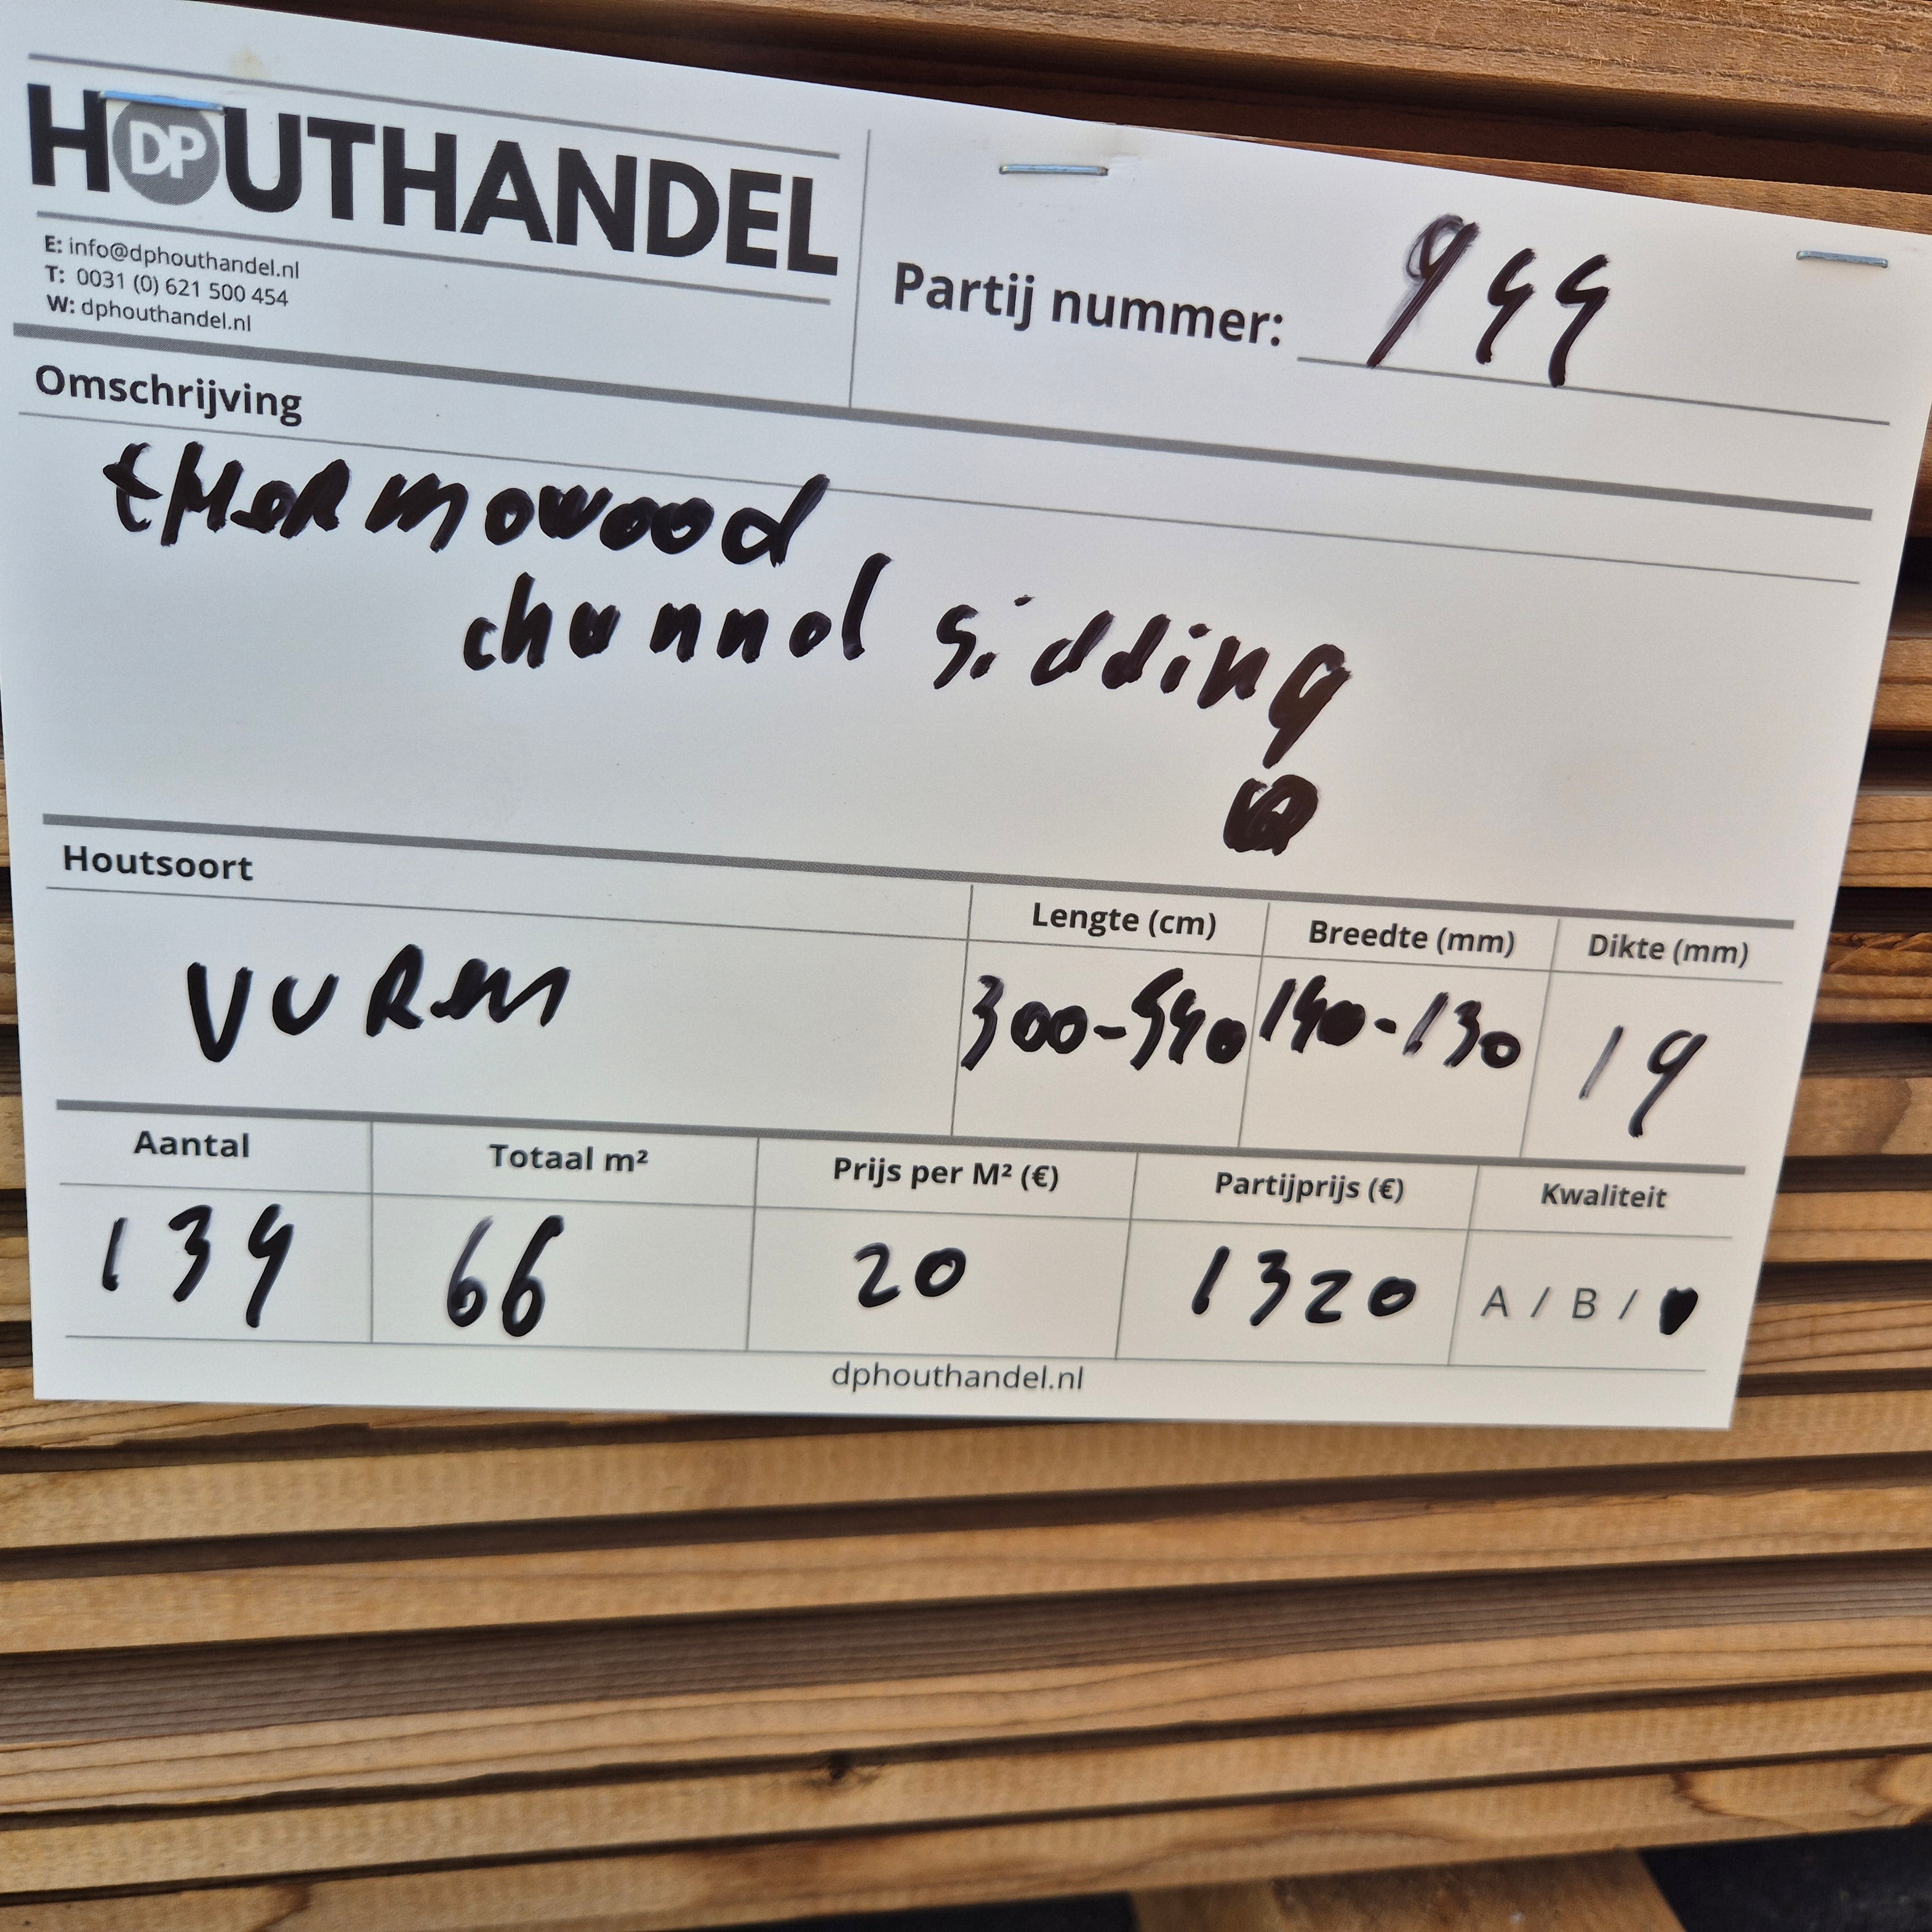 HOUTHANDEL
DP
E: info@dphouthandel.nl
T: 0031 (0) 621 500 454
W: dphouthandel.nl
Partij nummer: 944
Omschrijving
thermowood
channel sidding
Houtsoort
Lengte (cm) Breedte (mm) Dikte (mm)
VUREN 300-540 140-130 19
Aantal Totaal m² Prijs per M² (€) Partijprijs (€) Kwaliteit
139 66 20 1320 A / B /
dphouthandel.nl